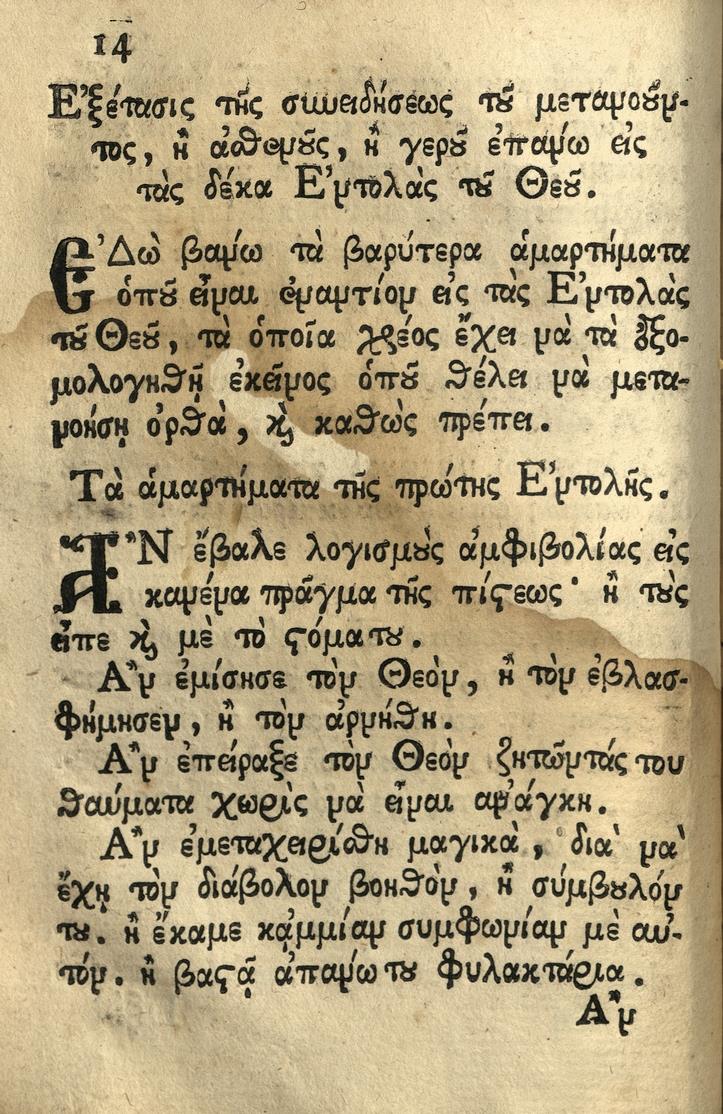 14
Ἐξέτασις τῆς συνειδήσεως τοῦ μετανοοῦν-
τος, ἢ ἀσθενοῦς, ἢ γεροῦ ἐπάνω εἰς
τὰς δέκα Ἐντολὰς τοῦ Θεοῦ.
Ἐ'Δὼ βάνω τὰ βαρύτερα ἁμαρτήματα
ὁποῦ εἶναι ἐναντίον εἰς τὰς Ἐντολὰς
τοῦ Θεοῦ, τὰ ὁποῖα χρέος ἔχει νὰ τὰ ἐξο-
μολογηθῇ ἐκεῖνος ὁποῦ θέλει νὰ μετα-
νοήσῃ ὀρθὰ, καὶ καθὼς πρέπει.
Τὰ ἁμαρτήματα τῆς πρώτης Ἐντολῆς.
ἊΝ ἔβαλε λογισμοὺς ἀμφιβολίας εἰς
κανένα πρᾶγμα τῆς πίστεως· ἢ τοὺς
εἶπε καὶ μὲ τὸ στόμα του.
Ἂν ἐμίσησε τὸν Θεὸν, ἢ τὸν ἐβλασ-
φήμησεν, ἢ τὸν ἀρνήθη.
Ἂν ἐπείραξε τὸν Θεὸν ζητῶντάς του
θαύματα χωρὶς νὰ εἶναι ανάγκη.
Ἂν ἐμεταχειρίσθη μαγικὰ, διὰ νὰ
ἔχῃ τὸν διάβολον βοηθὸν, ἢ σύμβουλόν
του. ἢ ἔκαμε κᾀμμίαν συμφωνίαν μὲ αὐ-
τόν. ἢ βαστᾷ ἀπάνω του φυλακτάρια.
Ἂν